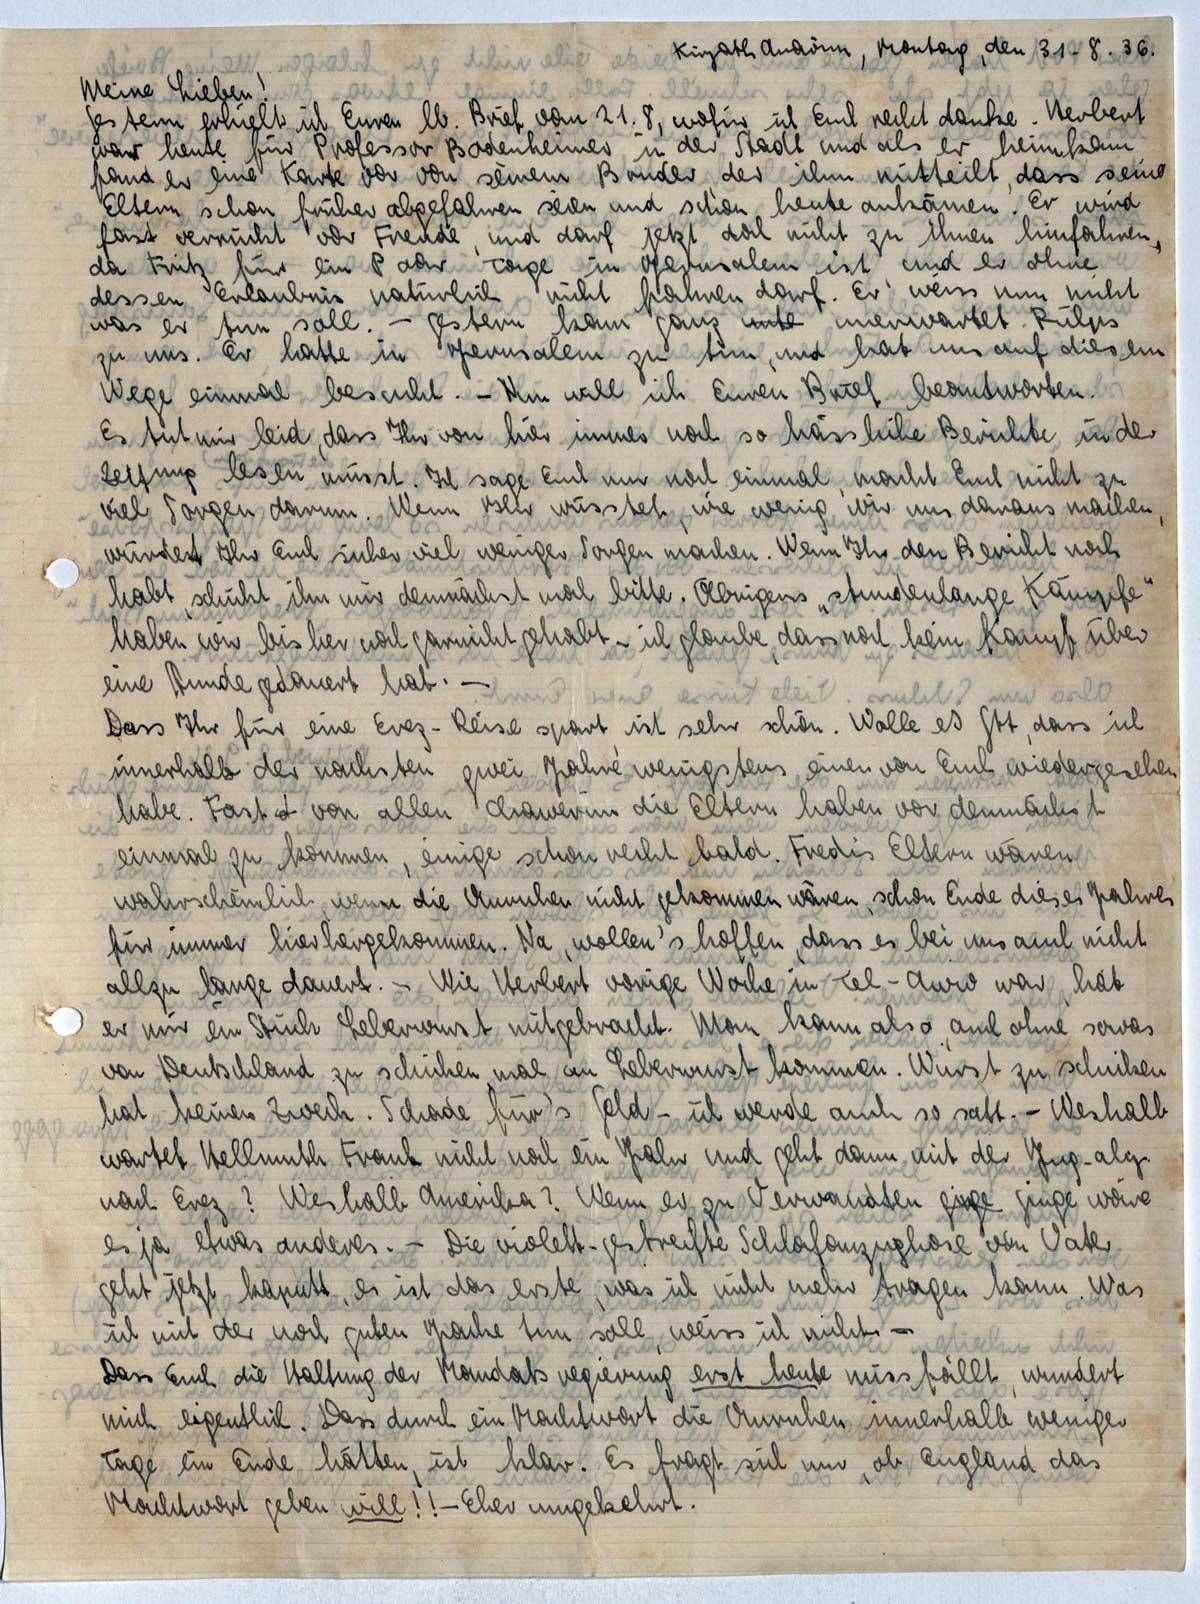 Kirjath Anavim, Montag, den 31.-8.36.
Meine Lieben!
Gestern erhielt ich Euren lb. Brief vom 21.8, wofür ich Euch recht danke. Herbert
war heute für Professor Bodenheimer in der Stadt und als er heimkam
fand er eine Karte vor von seinem Bruder der ihm mitteilt, dass seine
Eltern schon früher abgefahren seien und schon heute ankämen. Er wird
fast verrückt vor Freude, und darf jetzt doch nicht zu ihnen hinfahren,
da Fritz für ein P oar Tage in Jerusalem ist und er ohne
dessen Erlaubnis natürlich nicht fahren darf. Er weiss nun nicht
was er tun soll. – Gestern kam ganz unerwartet Rülps
zu uns. Er hatte in Jerusalem zu tun, und hat uns auf diesem
Wege einmal besucht. – Nun will ich Euren Brief beantworten.
Es tut mir leid, dass Ihr von hier immer noch so hässliche Berichte in der
Zeitung lesen müsst. Ich sage Euch nur noch einmal, macht Euch nicht zu
viel Sorgen darum. Wenn Ihr wüsstet, wie wenig wir uns daraus machen,
würdet Ihr Euch sicher viel weniger Sorgen machen. Wenn Ihr den Bericht noch
habt, schickt ihn mir demnächst mal bitte. Übrigens „stundenlange Kämpfe“
haben wir bisher noch garnicht gehabt – ich glaube, dass noch kein Kampf über
eine Stunde gedauert hat. –
Dass Ihr für eine Erez-Reise spart ist sehr schön. Wolle es Gtt, dass ich
innerhalb der nächsten zwei Jahre wenigstens einen von Euch wiedergesehen
habe. Fast von allen Chawerim die Eltern haben vor demnächst
einmal zu kommen, einige schon recht bald. Fredis Eltern wären
wahrscheinlich, wenn die Unruhen nicht gekommen wären, schon Ende dieses Jahres
für immer hierhergekommen. Na, wollen's hoffen, dass es bei uns auch nicht
allzu lange dauert. – Wie Herbert vorige Woche in Tel-Awiw war, hat
er mir ein Stück Leberwurst mitgebracht. Man kann also auch ohne sowas
von Deutschland zu schicken mal an Leberwurst kommen. Wurst zu schicken
hat keinen Zweck. Schade für's Geld – ich werde auch so satt. – Weshalb
wartet Hellmuth Frank nicht noch ein Jahr und geht dann mit der Jug-alij.
nach Erez? Weshalb Amerika? Wenn er zu Verwandten ginge wäre
es ja etwas anderes. – Die violett-gestreifte Schlafanzughose von Vater
geht jetzt kaputt, es ist das erste, was ich nicht mehr tragen kann. Was
ich mit der noch guten Jacke tun soll, weiss ich nicht. –
Dass Euch die Haltung der Mandatsregierung erst heute missfällt, wundert
mich eigentlich. Dass durch ein Machtwort die Unruhen innerhalb weniger
Tage ein Ende hätten, ist klar. Es fragt sich nur, ob England das
Machtwort geben will!! – Eher umgekehrt.